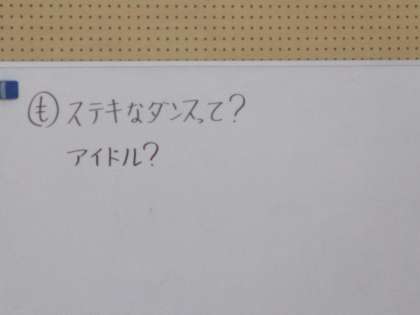 も ステキなダンスって?
アイドル?